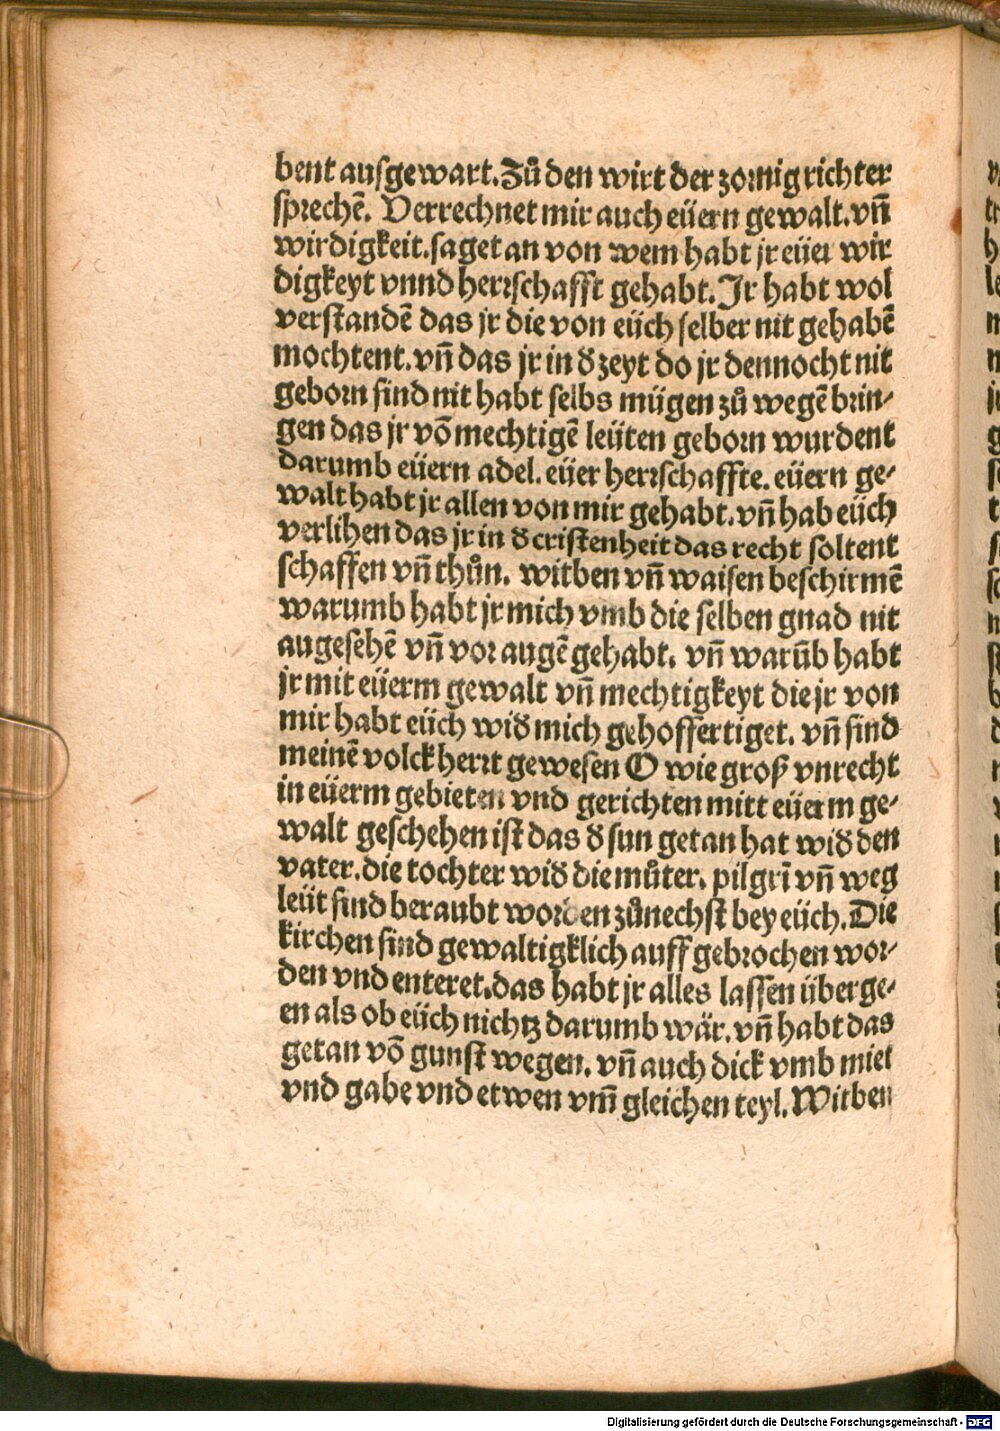 bent ausgewart. Zů den wirt der zornig richter
sprechē. Verrechnet mir auch eüern gewalt. vn̄
wirdigkeit. saget an von wem habt jr eüer wir
digkeyt vnnd herrschafft gehabt. Ir habt wol
verstandē das jr die von eüch selber nit gehabē
mochtent. vn̄ das jr in đ zeyt do jr dennocht nit
geborn sind nit habt selbs mügen zů wegē brin⸗
gen das jr vō mechtigē leüten geborn wurdent
darumb eüern adel. eüer herrschaffte. eüern ge⸗
walt habt jr allen von mir gehabt. vn̄ hab eüch
verlihen das jr in đ cristenheit das recht soltent
schaffen vn̄ thůn. witben vn̄ waisen beschirmē
warumb habt jr mich vmb die selben gnad nit
angesehē vn̄ vor augē gehabt. vn̄ warūb habt
jr mit eüerm gewalt vn̄ mechtigkeyt die jr von
mir habt eüch wiđ mich gehoffertiget. vn̄ sind
meinē volck herrt gewesen O wie groß vnrecht
in eüerm gebieten vnd gerichten mitt eüerm ge⸗
walt geschehen ist das đ sun getan hat wiđ den
vater. die tochter wiđ die můter. pilgrī vn̄ weg
leüt sind beraubt worden zůnechst bey eüch. Die
kirchen sind gewaltigklich auff gebrochen wor⸗
den vnd enteret. das habt jr alles lassen überge⸗
en als ob eüch nichtz darumb wär. vn̄ habt das
getan vō gunst wegen. vn̄ auch dick vmb miet
vnd gabe vnd etwen vm̄ gleichen teyl. Witben
Digitalisierung gefördert durch die Deutsche Forschungsgemeinschaft - DFG